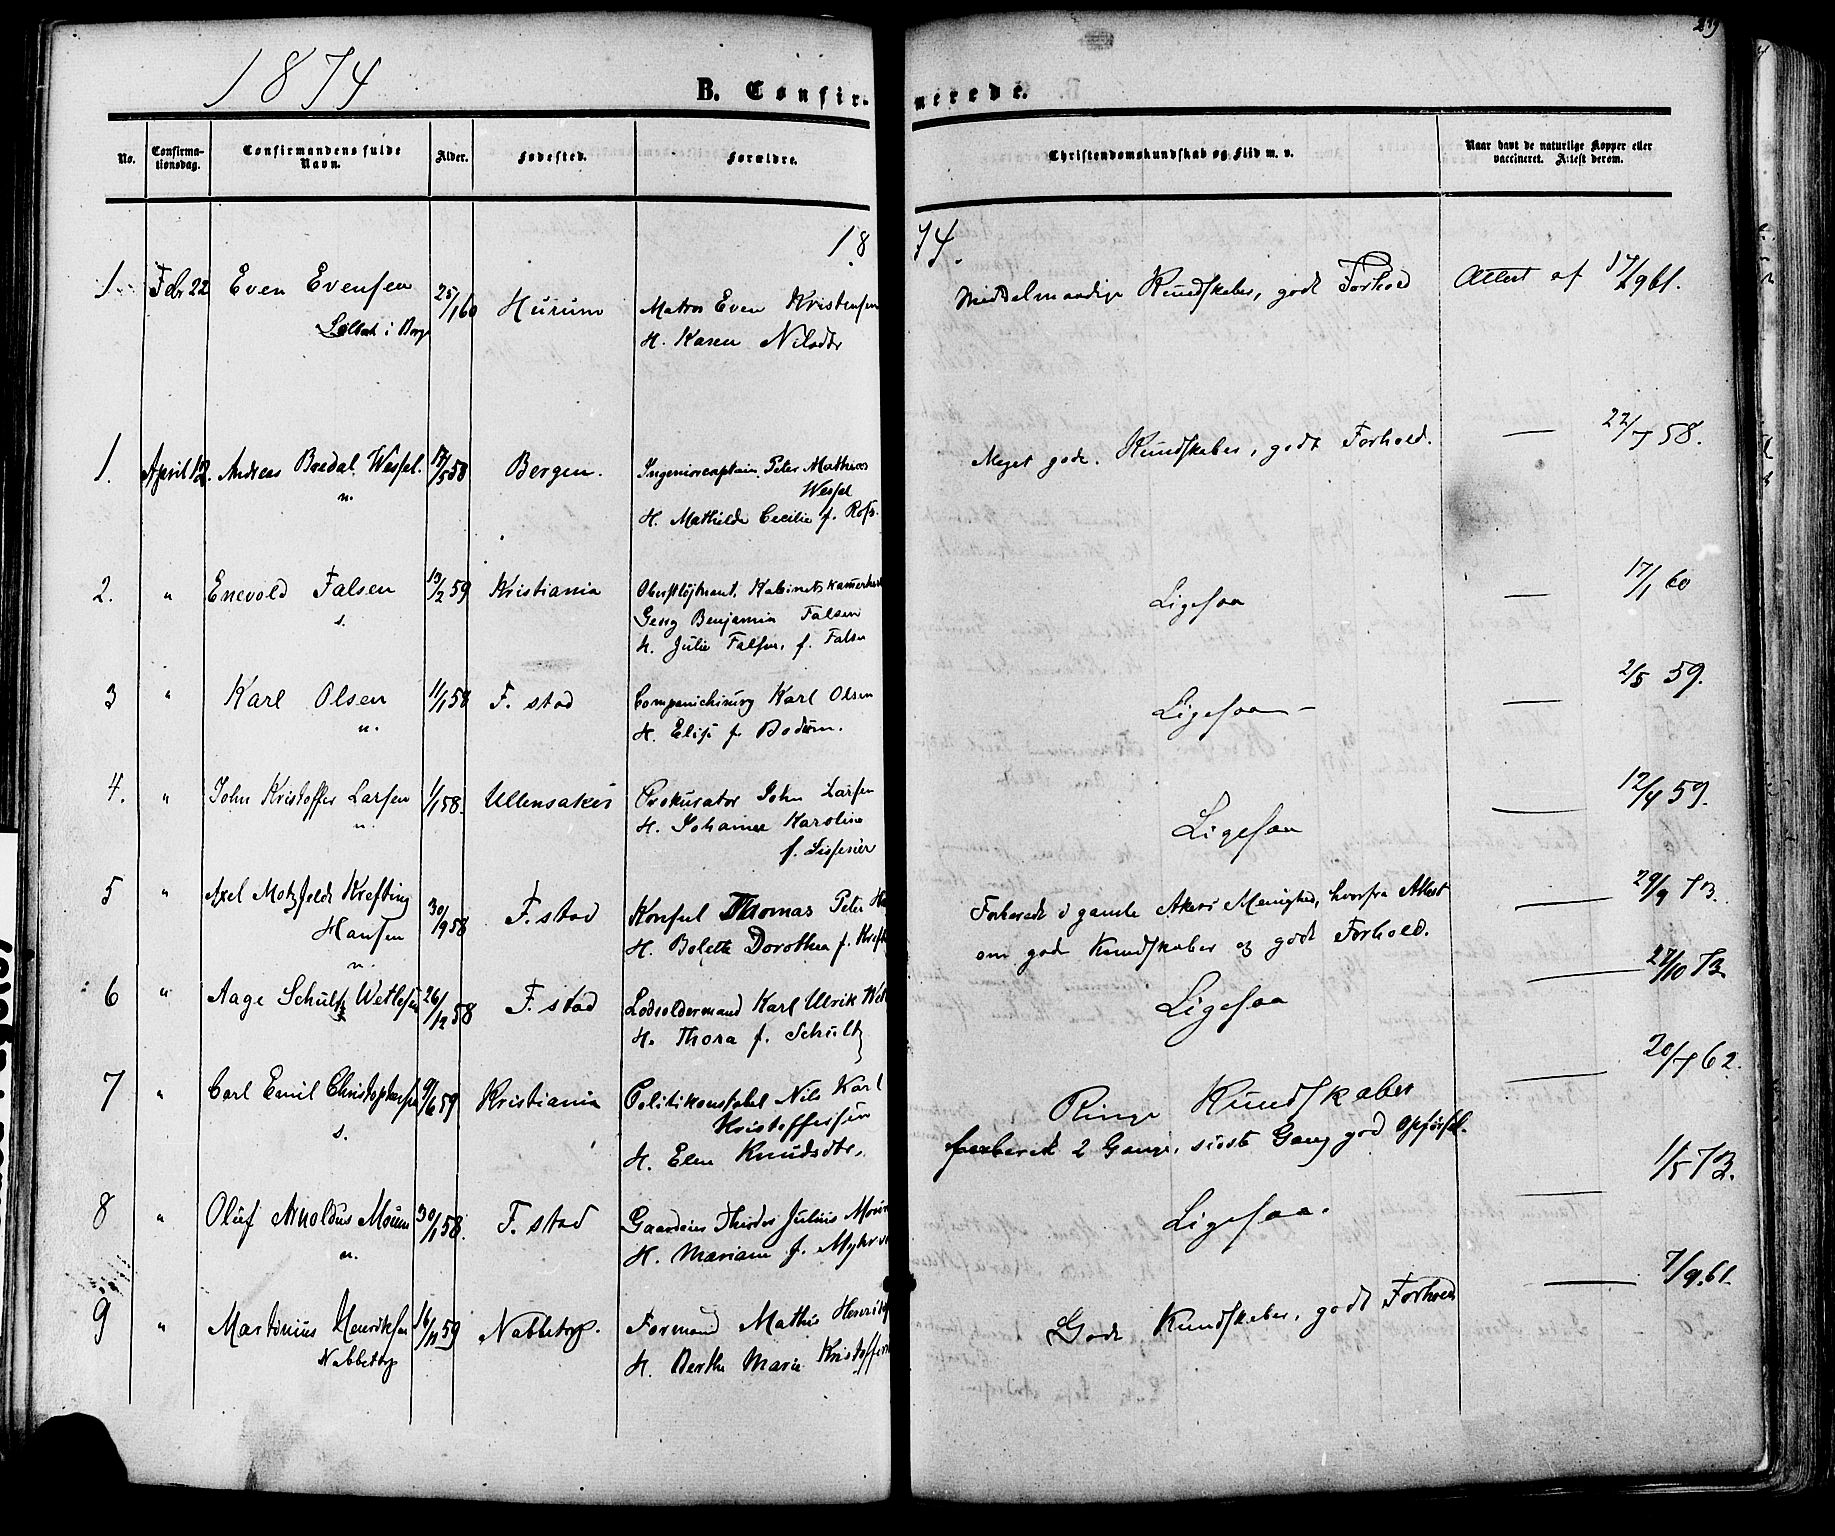 1874
B. Confirmerede.
No. Confirmationsdag. Confirmandens fulde Navn. Alder. Fødested. Forældre. Christendomskundskab og Flid m. v. Naar havt de naturlige Kopper eller vaccineret. Attest derom.
1874.
1. Febr 22 Even Evensen 25/1 60 Hurum Matros Even Kristensen Middelmaadige Kundskaber, godt Forhold Attest af 17/9 61.
i Borge H. Karen Nilsdtr
1. April 12. Andreas Bredal Wessel. 17/5 58 Bergen. Ingenieurcaptain Peter Mathias Meget gode Kundskaber, godt Forhold. — 22/7 58.
n. Wessel
H. Mathilde Cecilie f. Ross.
2. " Enevold Falsen 13/2 59 Kristiania Oberstløjtnant, Kabinetskammerherre Ligesaa — 17/1 60
s. Georg Benjamin Falsen
H. Julie Falsen, f. Falsen
3 " Karl Olsen 11/1 58 F. stad Companichirurg Karl Olsen Ligesaa — 2/5 59.
n. H. Elise f. Bodom.
4. " John Kristoffer Larsen 1/1 58. Ullensaker Prokurator John Larsen Ligesaa — 12/4 59.
n. H. Johanne Karoline
f.
5 " Axel Motzfeldt Krefting 30/9 58 F. stad Konsul Thomas Peter Forberedt i gamle Akers Menighed, hvorfra Attest — 29/9 73.
Hansen H. Bolette Dorothea f. om gode Kundskaber og godt Forhold.
n.
6 " Aage Schultz Wetlesen 26/12 58 F. stad Lodsoldermand Karl Ulrik Ligesaa — 27/10 73
H. Thora f. Schultz
7 " Carl Emil Christophersen 9/6 59 Kristiania Politikonstabel Nils Karl Ringe Kundskaber — 20/7 62.
s. Kristoffersen forberedt 2 Gange, sidste Gang god Opførsel.
H. Elen Knudsdtr.
8 " Oluf Arnoldus Moum 30/1 58. F. stad Gaardeier Julius Moum Ligesaa. — 1/5 73.
n. H. Mariane f.
9 " Martinius Henriksen 16/11 59 Nabbetorp. Formand Mathis Gode Kundskaber, godt Forhold — 7/9 61.
Nabbetorp H. Berthe Marie